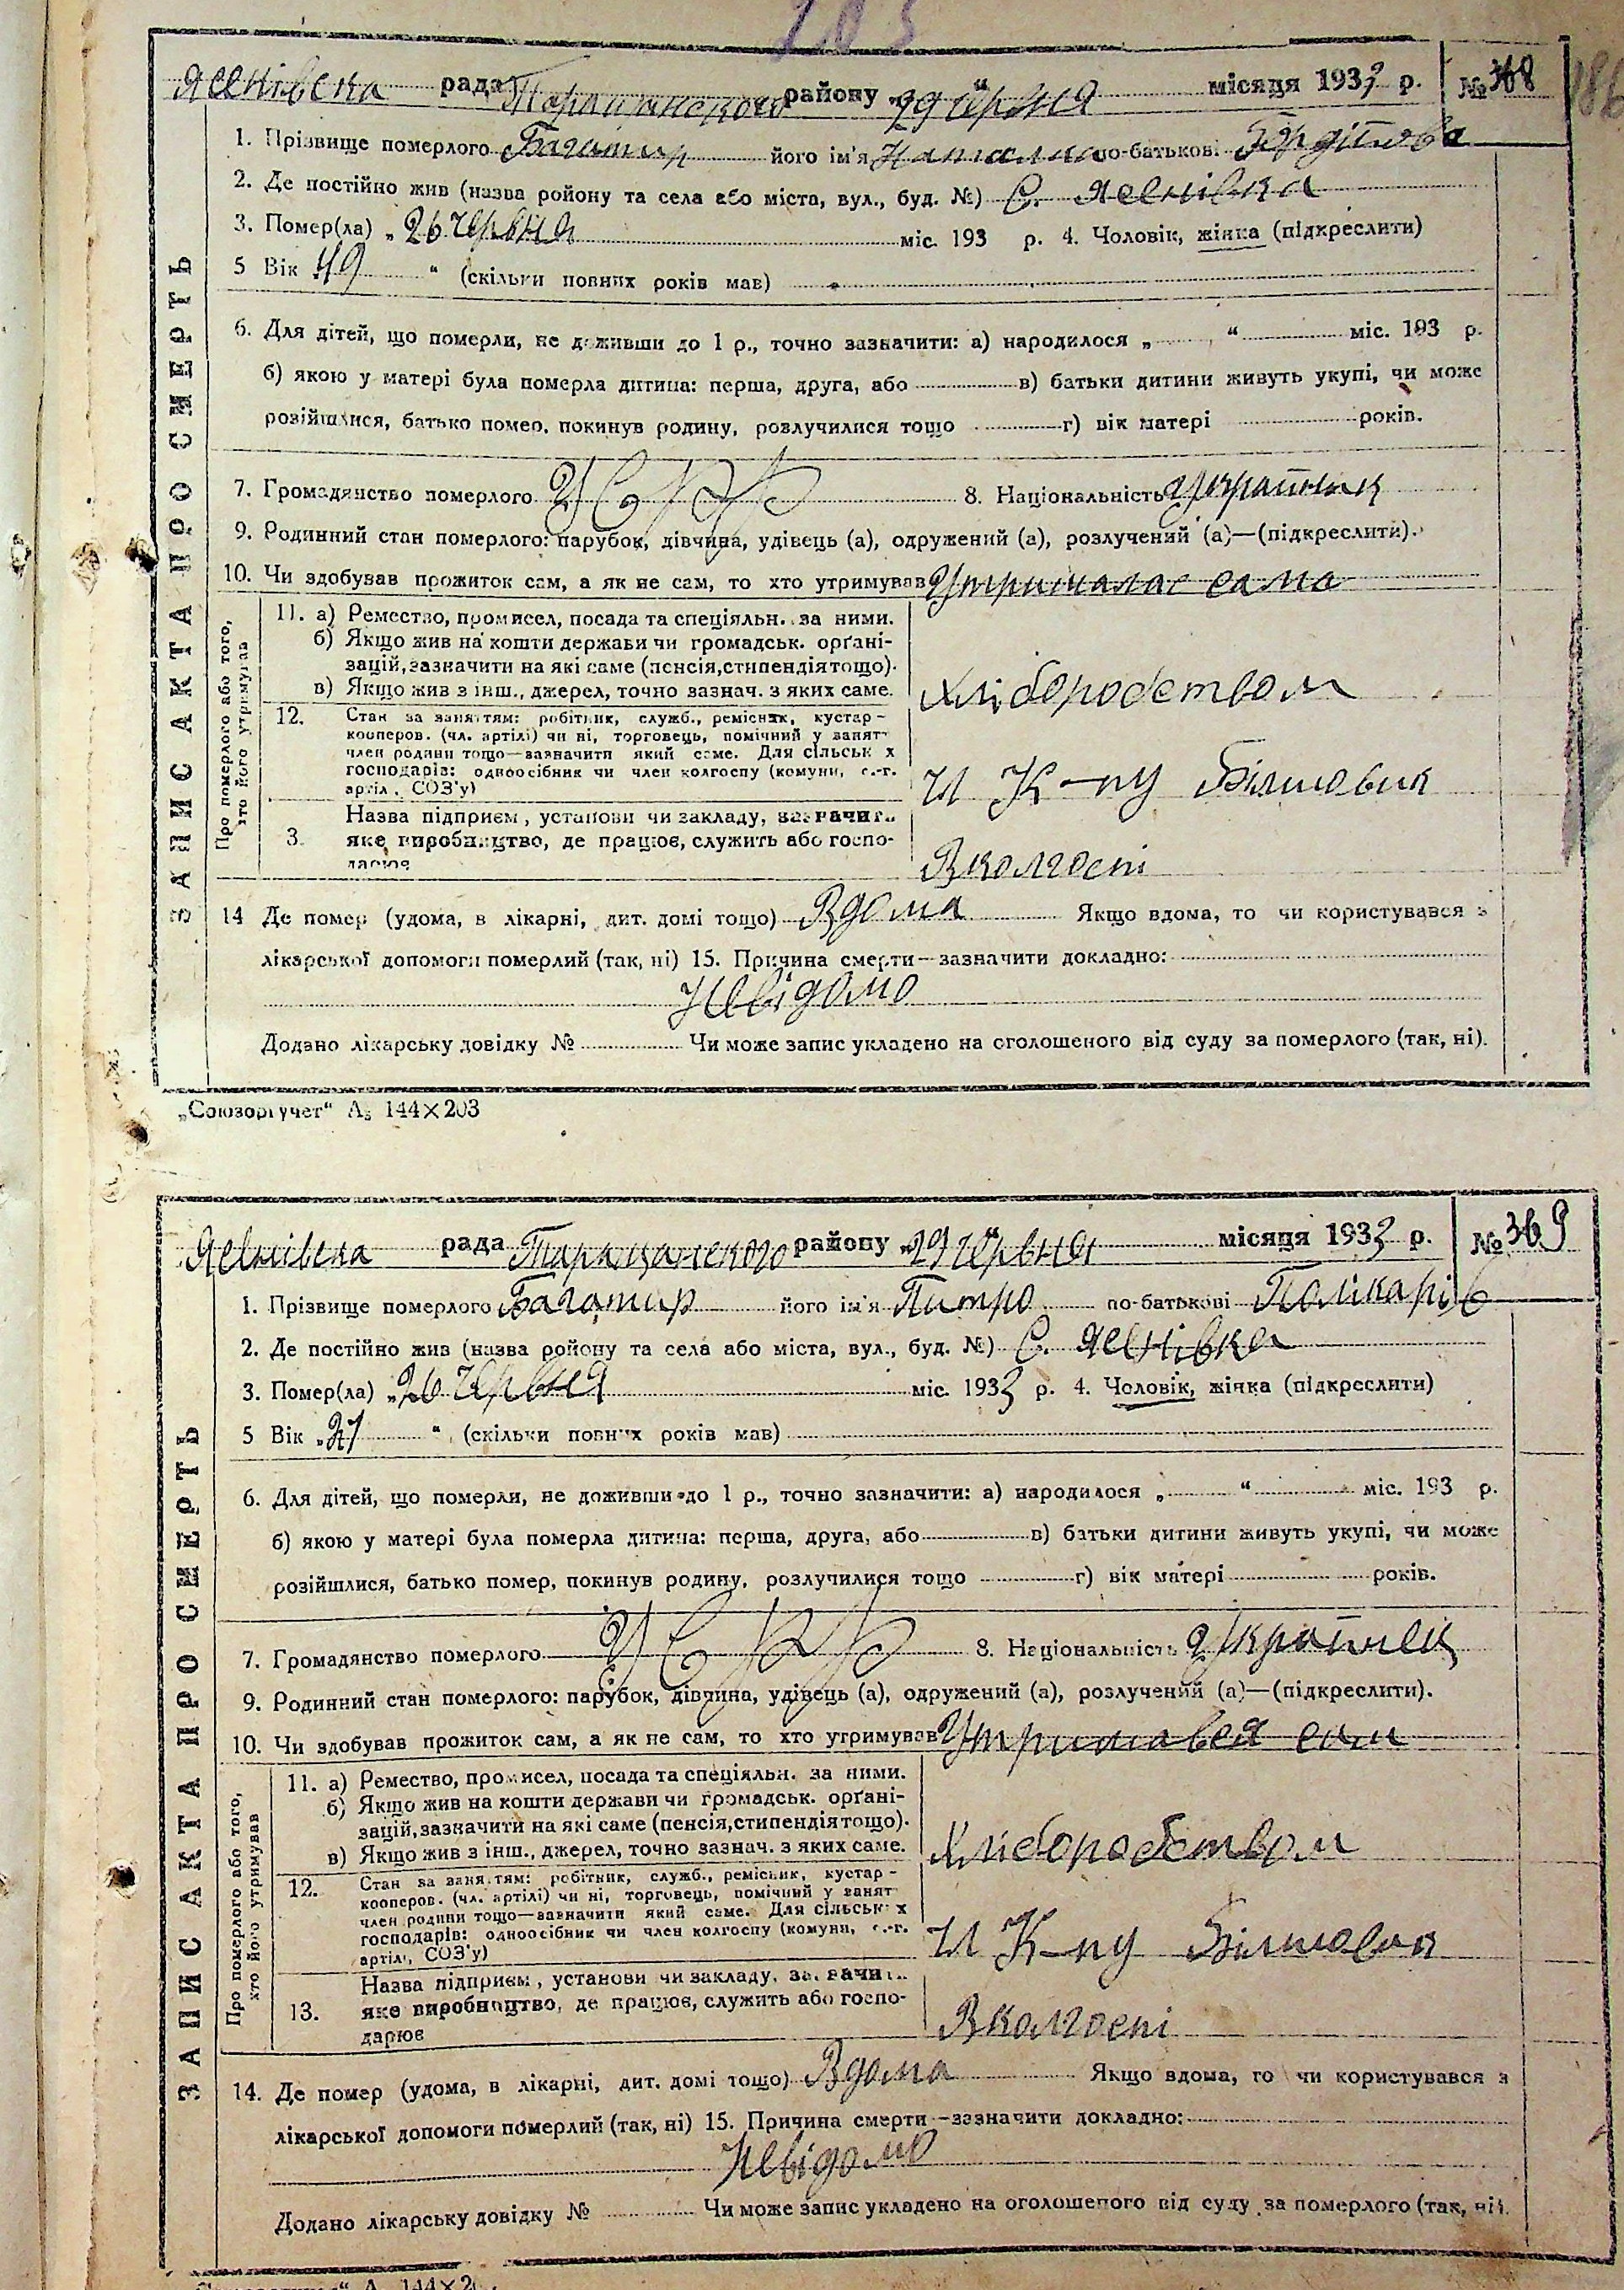 203
Ясенівська рада Таращанского району „29 червня" місяця 1933 р. № 368
1. Прізвище померлого Багатир його ім'я Наталка по-батькові
2. Де постійно жив (назва ройону та села або міста, вул., буд. №) С. Ясенівка
3. Помер(ла) „26 червня міс. 193 р. 4. Чоловік, жінка (підкреслити)
5 Вік 49 " (скільки повних років мав)
6. Для дітей, що померли, не доживши до 1 р., точно зазначити: а) народилося „ " міс. 193 р.
б) якою у матері була померла дитина: перша, друга, або в) батьки дитини живуть укупі, чи може
розійшлися, батько помер, покинув родину, розлучилися тощо г) вік матері років.
7. Громадянство померлого УСРР 8. Національність
9. Родинний стан померлого: парубок, дівчина, удівець (а), одружений (а), розлучений (а)—(підкреслити).
10. Чи здобував прожиток сам, а як не сам, то хто утримував Утрималас сама
ЗАПИС АКТА ПРО СМЕРТЬ
Про померлого або того, хто його утримував
11. а) Ремество, промисел, посада та спеціяльн. за ними.
б) Якщо жив на кошти держави чи громадськ. орґані-
зацій, зазначити на які саме (пенсія, стипендія тощо).
в) Якщо жив з інш., джерел, точно зазнач. з яких саме.
Хліборобством
12. Стан за заняттям: робітник, служб., ремісник, кустар -
кооперов. (чл. артілі) чи ні, торговець, помічний у занят-
член родини тощо—зазначити який саме. Для сільськ х
господарів: одноосібник чи член колгоспу (комуни, с.-г.
артіл., СОЗ'у)
Ч К-пу Більшовик
3. Назва підприєм, установи чи закладу, зазначити
яке виробництво, де працює, служить або госпо-
дарює
В колгоспі
14 Де помер (удома, в лікарні, дит. домі тощо) Вдома Якщо вдома, то чи користувався з
лікарської допомоги померлий (так, ні) 15. Причина смерти—зазначити докладно:
Невідомо
Додано лікарську довідку № Чи може запис укладено на оголошеного від суду за померлого (так, ні).
„Союзоргучет" А₅ 144×203
Ясенівська рада Таращанского району „29 червня" місяця 1933 р. № 369
1. Прізвище померлого Багатир його ім'я Питро по-батькові Полікарпів
2. Де постійно жив (назва ройону та села або міста, вул., буд. №) С. Ясенівка
3. Помер(ла) „26 червня міс. 1933 р. 4. Чоловік, жінка (підкреслити)
5 Вік „27 " (скільки повних років мав)
6. Для дітей, що померли, не доживши до 1 р., точно зазначити: а) народилося „ " міс. 193 р.
б) якою у матері була померла дитина: перша, друга, або в) батьки дитини живуть укупі, чи може
розійшлися, батько помер, покинув родину, розлучилися тощо г) вік матері років.
7. Громадянство померлого УСРР 8. Національність
9. Родинний стан померлого: парубок, дівчина, удівець (а), одружений (а), розлучений (а)—(підкреслити).
10. Чи здобував прожиток сам, а як не сам, то хто утримував Утримався сам
ЗАПИС АКТА ПРО СМЕРТЬ
Про померлого або того, хто його утримував
11. а) Ремество, промисел, посада та спеціяльн. за ними.
б) Якщо жив на кошти держави чи громадськ. орґані-
зацій, зазначити на які саме (пенсія, стипендія тощо).
в) Якщо жив з інш., джерел, точно зазнач. з яких саме.
Хліборобством
12. Стан за занят.тям: робітник, служб., ремісник, кустар -
кооперов. (чл. артілі) чи ні, торговець, помічний у занят
член родини тощо—зазначити який саме. Для сільськ х
господарів: одноосібник чи член колгоспу (комуни, с.-г.
артіл, СОЗ'у)
Ч К-пу Більшовик
13. Назва підприєм, установи чи закладу, зазначити
яке виробництво, де працює, служить або госпо-
дарює
В колгоспі
14. Де помер (удома, в лікарні, дит. домі тощо) Вдома Якщо вдома, то чи користувався з
лікарської допомоги померлий (так, ні) 15. Причина смерти—зазначити докладно:
Невідомо
Додано лікарську довідку № Чи може запис укладено на оголошеного від суду за померлого (так, ні).